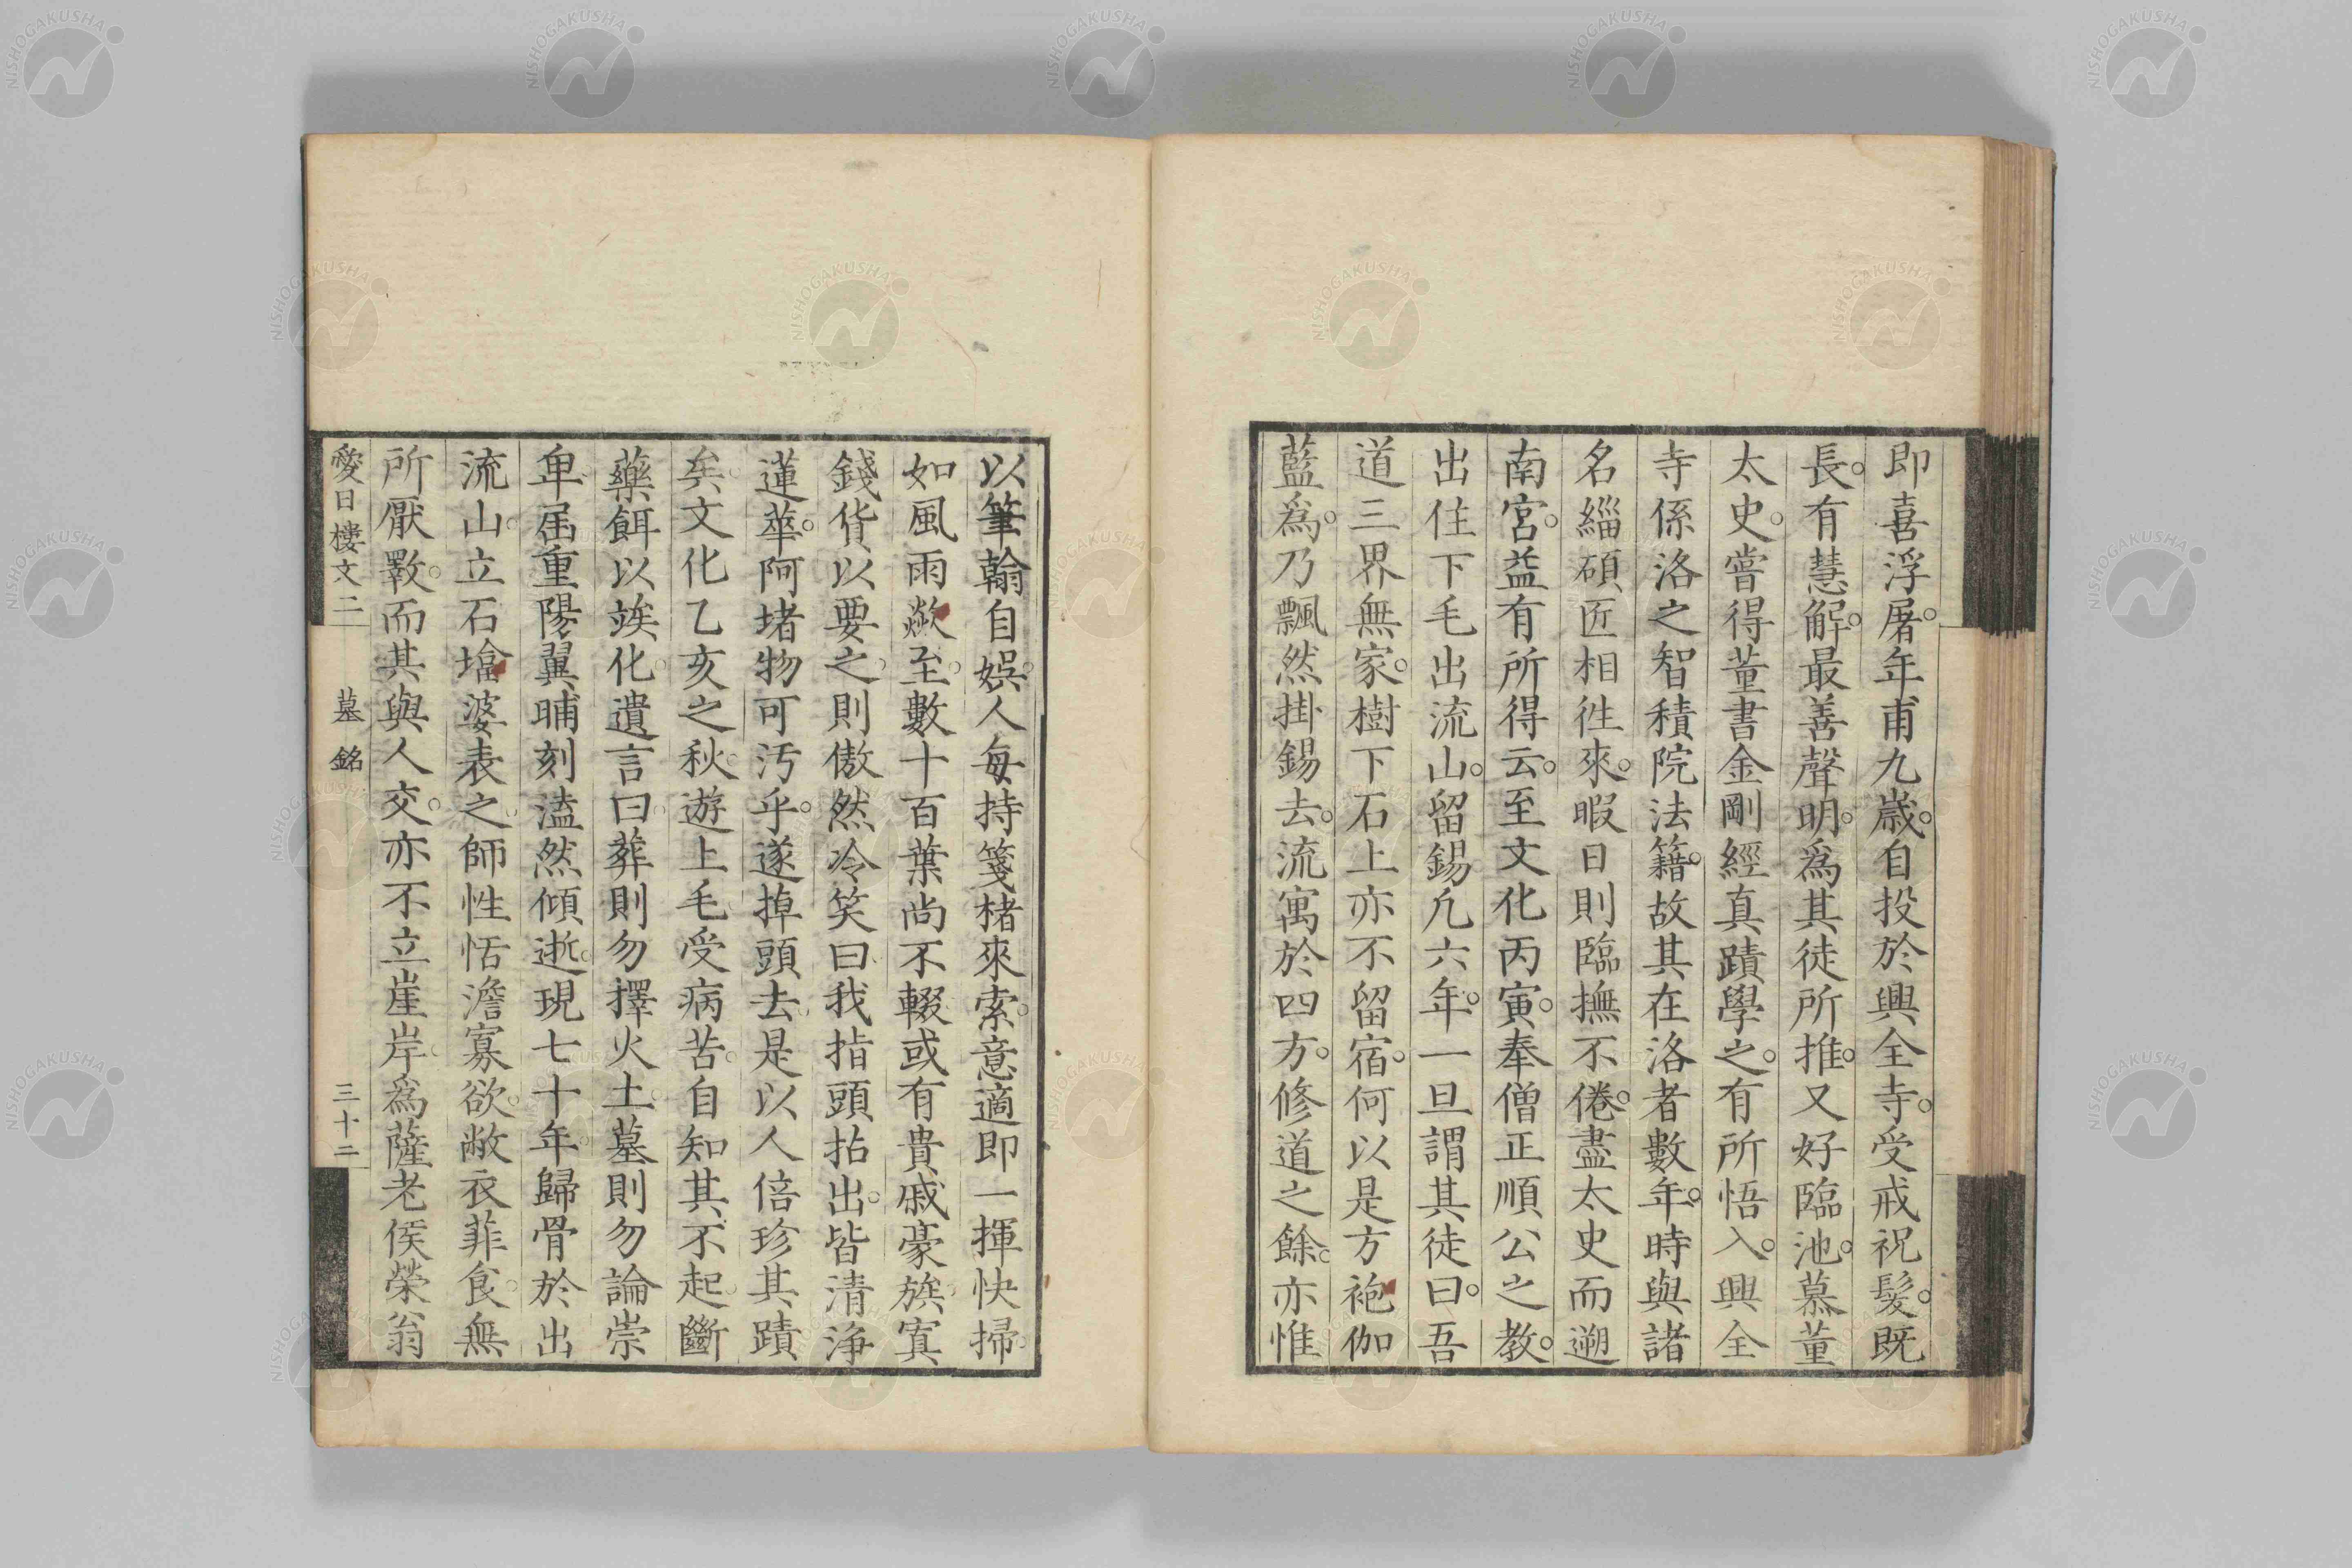 即喜浮屠。年甫九歳。自投於興全寺。受戒祝髮。既
長。有慧解。最善聲明。爲其徒所推。又好臨池。慕董
太史。嘗得董書金剛經真蹟學之。有所悟入。興全
寺係洛之智積院法籍。故其在洛者數年。時與諸
名緇碩匠相徃來。暇日則臨撫不倦。盡太史而遡
南宮。益有所得云。至文化丙寅。奉僧正順公之教。
出住下毛出流山。留錫凡六年。一旦謂其徒曰。吾
道三界無家。樹下石上亦不留宿。何以是方袍伽
藍爲。乃飄然掛錫去。流寓於四方。修道之餘。亦惟
以筆翰自娯。人每持箋楮來索。意適即一揮快掃。
如風雨歘至。數十百葉尚不輟。或有貴戚豪族。寘
錢貨以要之。則傲然冷笑曰。我指頭拈出。皆清浄
蓮華。阿堵物可汚乎。遂掉頭去。是以人倍珍其蹟
矣。文化乙亥之秋。遊上毛。受病苦。自知其不起。斷
藥餌以竢化。遺言曰。葬則勿擇火土。墓則勿論崇
卑。届重陽翼晡刻溘然傾逝。現七十年。歸骨於出
流山。立石墖婆表之。師性恬澹寡欲。敝衣菲食。無
所厭斁。而其與人交。亦不立崖岸。爲薩老侯榮翁
愛日樓文二　墓銘　三十二
NISHOGAKUSHA